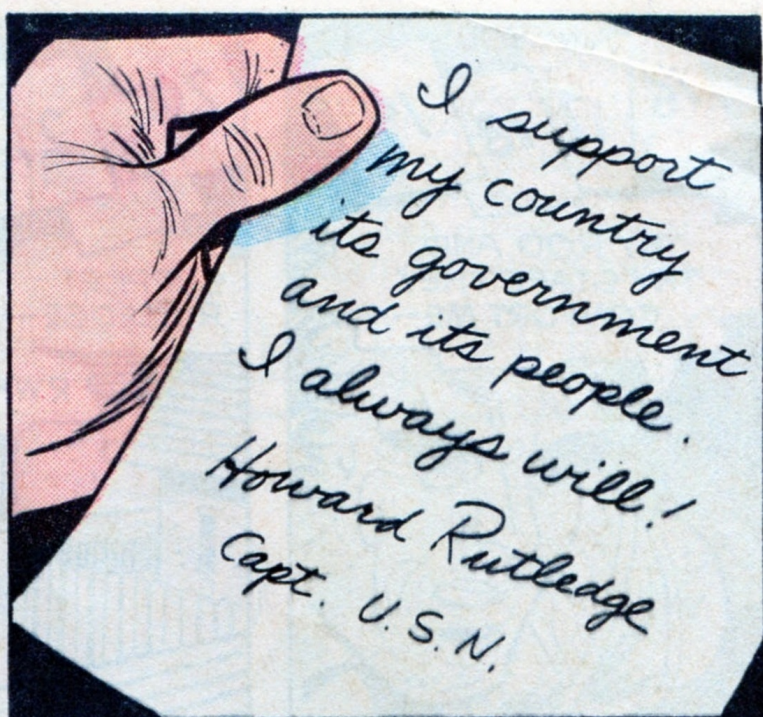 I support
my country
its government
and its people.
I always will!
Howard Rutledge
Capt. U.S.N.